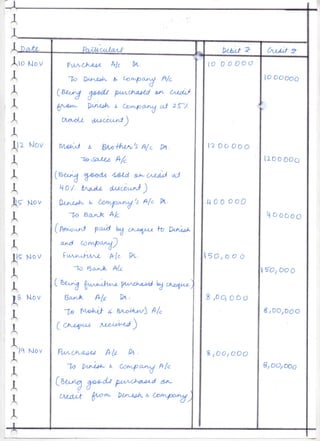 Date Particulars Debit ₹ Credit ₹
10 Nov Purchase A/c Dr. 10 00000
To Dinesh & Company A/c 1000000
(Being goods purchased on credit
from Dinesh & Company at 25%
trade discount)
12 Nov Mohit & Brother's A/c Dr. 1200000
To sales A/c 1200000
(Being goods sold on credit at
40% trade discount)
15 Nov Dinesh & Company's A/c Dr. 400000
To Bank A/c 400000
(Amount paid by cheque to Dinesh
and company)
15 Nov Furniture A/c Dr. 150,000
To Bank A/c 150,000
(Being furniture purchased by cheque)
18 Nov Bank A/c Dr. 8,00,000
To Mohit & Brothers A/c 8,00,000
(cheque received)
19 Nov Purchases A/c Dr. 8,00,000
To Dinesh & Company A/c 8,00,000
(Being goods purchased on
credit from Dinesh & company)